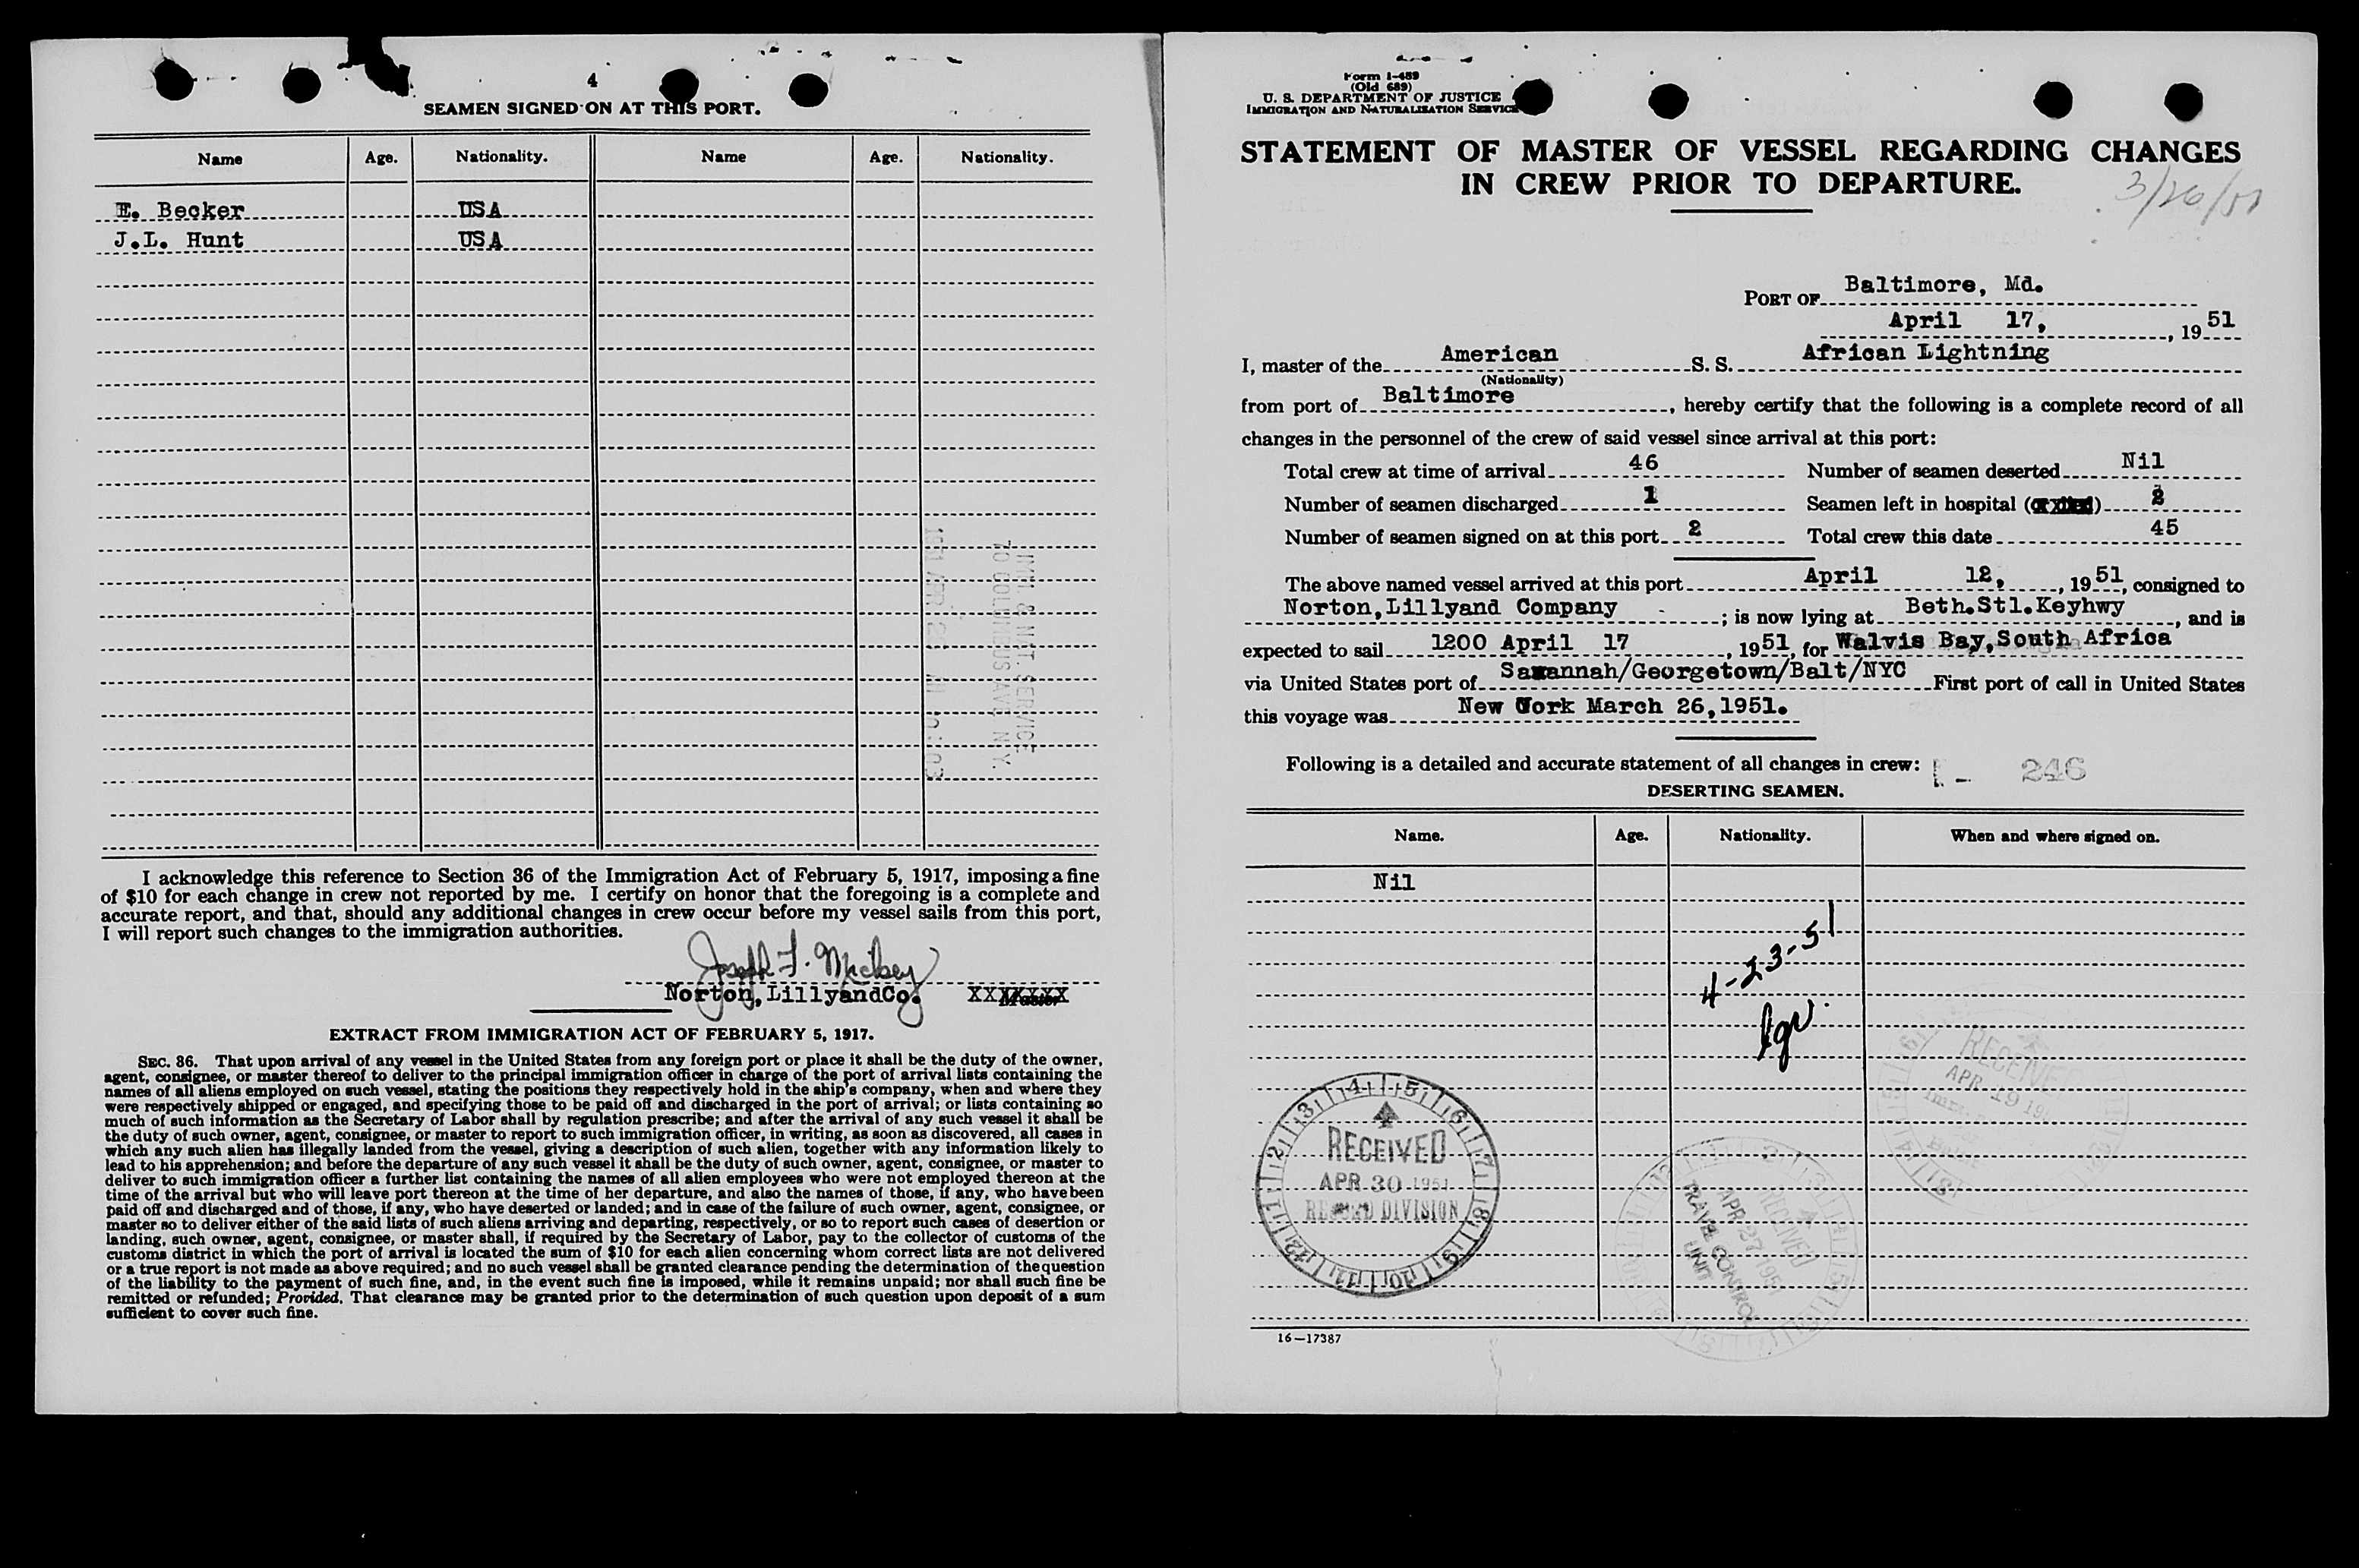 4
SEAMEN SIGNED ON AT THIS PORT.
Name Age. Nationality. Name Age. Nationality.
E. Becker USA
J.L. Hunt USA
1951 APR 23
IMM. & NAT. SERVICE
70 COLUMBUS AVE. N.Y.
I acknowledge this reference to Section 36 of the Immigration Act of February 5, 1917, imposing a fine
of $10 for each change in crew not reported by me. I certify on honor that the foregoing is a complete and
accurate report, and that, should any additional changes in crew occur before my vessel sails from this port,
I will report such changes to the immigration authorities.
Joseph F.
Norton, LillyandCo. XXXXXXX Master
EXTRACT FROM IMMIGRATION ACT OF FEBRUARY 5, 1917.
SEC. 36. That upon arrival of any vessel in the United States from any foreign port or place it shall be the duty of the owner,
agent, consignee, or master thereof to deliver to the principal immigration officer in charge of the port of arrival lists containing the
names of all aliens employed on such vessel, stating the positions they respectively hold in the ship's company, when and where they
were respectively shipped or engaged, and specifying those to be paid off and discharged in the port of arrival; or lists containing so
much of such information as the Secretary of Labor shall by regulation prescribe; and after the arrival of any such vessel it shall be
the duty of such owner, agent, consignee, or master to report to such immigration officer, in writing, as soon as discovered, all cases in
which any such alien has illegally landed from the vessel, giving a description of such alien, together with any information likely to
lead to his apprehension; and before the departure of any such vessel it shall be the duty of such owner, agent, consignee, or master to
deliver to such immigration officer a further list containing the names of all alien employees who were not employed thereon at the
time of the arrival but who will leave port thereon at the time of her departure, and also the names of those, if any, who have been
paid off and discharged and of those, if any, who have deserted or landed; and in case of the failure of such owner, agent, consignee, or
master so to deliver either of the said lists of such aliens arriving and departing, respectively, or so to report such cases of desertion or
landing, such owner, agent, consignee, or master shall, if required by the Secretary of Labor, pay to the collector of customs of the
customs district in which the port of arrival is located the sum of $10 for each alien concerning whom correct lists are not delivered
or a true report is not made as above required; and no such vessel shall be granted clearance pending the determination of the question
of the liability to the payment of such fine, and, in the event such fine is imposed, while it remains unpaid; nor shall such fine be
remitted or refunded; Provided, That clearance may be granted prior to the determination of such question upon deposit of a sum
sufficient to cover such fine.
Form I-489
(Old 689)
U. S. DEPARTMENT OF JUSTICE
IMMIGRATION AND NATURALIZATION SERVICE
STATEMENT OF MASTER OF VESSEL REGARDING CHANGES
IN CREW PRIOR TO DEPARTURE.
3/26/51
PORT OF Baltimore, Md.
April 17, , 1951
I, master of the American S. S. African Lightning
(Nationality)
from port of Baltimore , hereby certify that the following is a complete record of all
changes in the personnel of the crew of said vessel since arrival at this port:
Total crew at time of arrival 46 Number of seamen deserted Nil
Number of seamen discharged 1 Seamen left in hospital (or died) 2
Number of seamen signed on at this port 2 Total crew this date 45
The above named vessel arrived at this port April 12, , 1951, consigned to
Norton,Lillyand Company ; is now lying at Beth.Stl.Keyhwy , and is
expected to sail 1200 April 17 , 1951, for Walvis Bay, South Africa
via United States port of Savannah/Georgetown/Balt/NYC First port of call in United States
this voyage was New York March 26,1951.
Following is a detailed and accurate statement of all changes in crew: 246
DESERTING SEAMEN.
Name. Age. Nationality. When and where signed on.
Nil
4-23-51
RECEIVED
APR. 19
RECEIVED
APR 30 1951
RECORD DIVISION
RECEIVED
APR 27 195
TRAVEL CONTROL
UNIT
16—17387